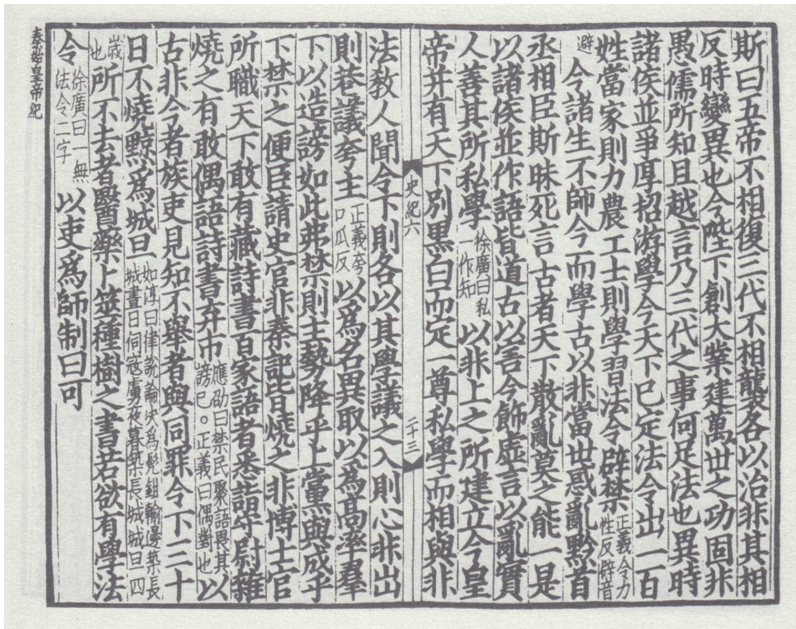 斯曰五帝不相復三代不相襲各以治非其相
反時變異也今陛下創大業建萬世之功固非
愚儒所知且越言乃三代之事何足法也異時
諸侯並爭厚招游學今天下已定法令出一百
姓當家則力農工士則學習法令辟禁正義令力性反辟音
避今諸生不師今而學古以非當世惑亂黔首
丞相臣斯昧死言古者天下散亂莫之能一是
以諸侯並作語皆道古以害今飾虛言以亂實
人善其所私學徐廣曰私一作知以非上之所建立今皇
帝并有天下別黑白而定一尊私學而相與非
史紀六
二十三
法教人聞令下則各以其學議之入則心非出
則巷議夸主正義夸口瓜反以爲名異取以爲高率羣
下以造謗如此弗禁則主勢降乎上黨與成乎
下禁之便臣請史官非秦記皆燒之非博士官
所職天下敢有藏詩書百家語者悉詣守尉雜
燒之有敢偶語詩書弃市應劭曰禁民聚語畏其謗己。正義曰偶對也以
古非今者族吏見知不舉者與同罪令下三十
日不燒黥爲城旦如淳曰律說論決爲髡鉗輸邊築長城晝日伺寇虜夜暮築長城城旦四
歲也所不去者醫藥卜筮種樹之書若欲有學法
令徐廣曰一無法令二字以吏爲師制曰可
秦始皇帝紀